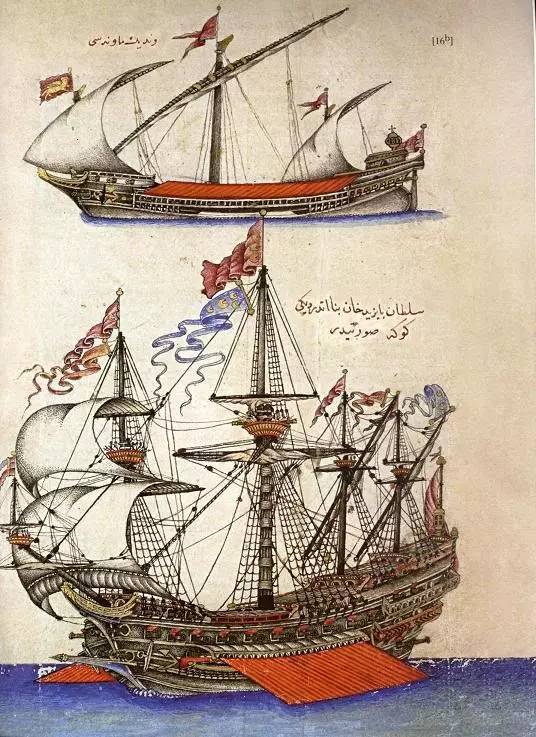 [16b]
وندیك ماونه‌سی
سلطان بایزید خان بنا اتدردیكی
كوكه صورتیدر